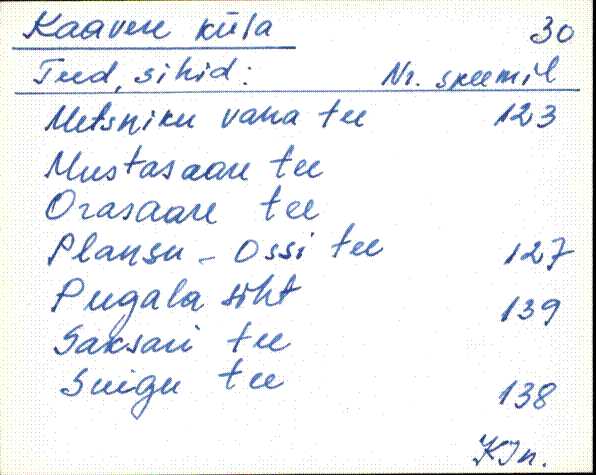 Kaavere küla 30
Teed, sihid: Nr. skeemil
Metsniku vana tee 123
Mustasaare tee
Orasaare tee
Plansu - Ossi tee 127
Pugala siht 139
Saksari tee
Suigu tee 138
KJn.